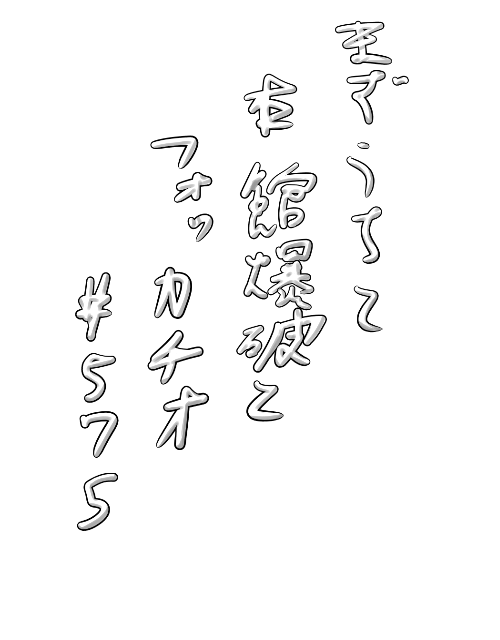 まず うちと
本館爆破と
フォッカチオ
#575